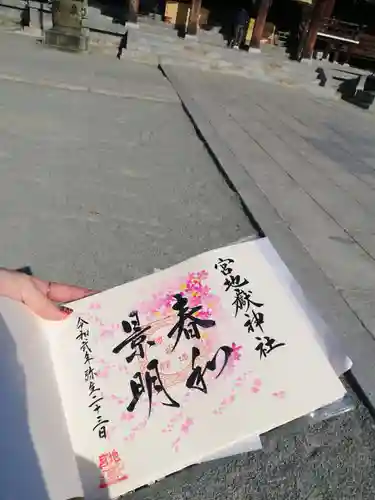 宮地嶽神社
春和
景明
令和弐年弥生二十三日